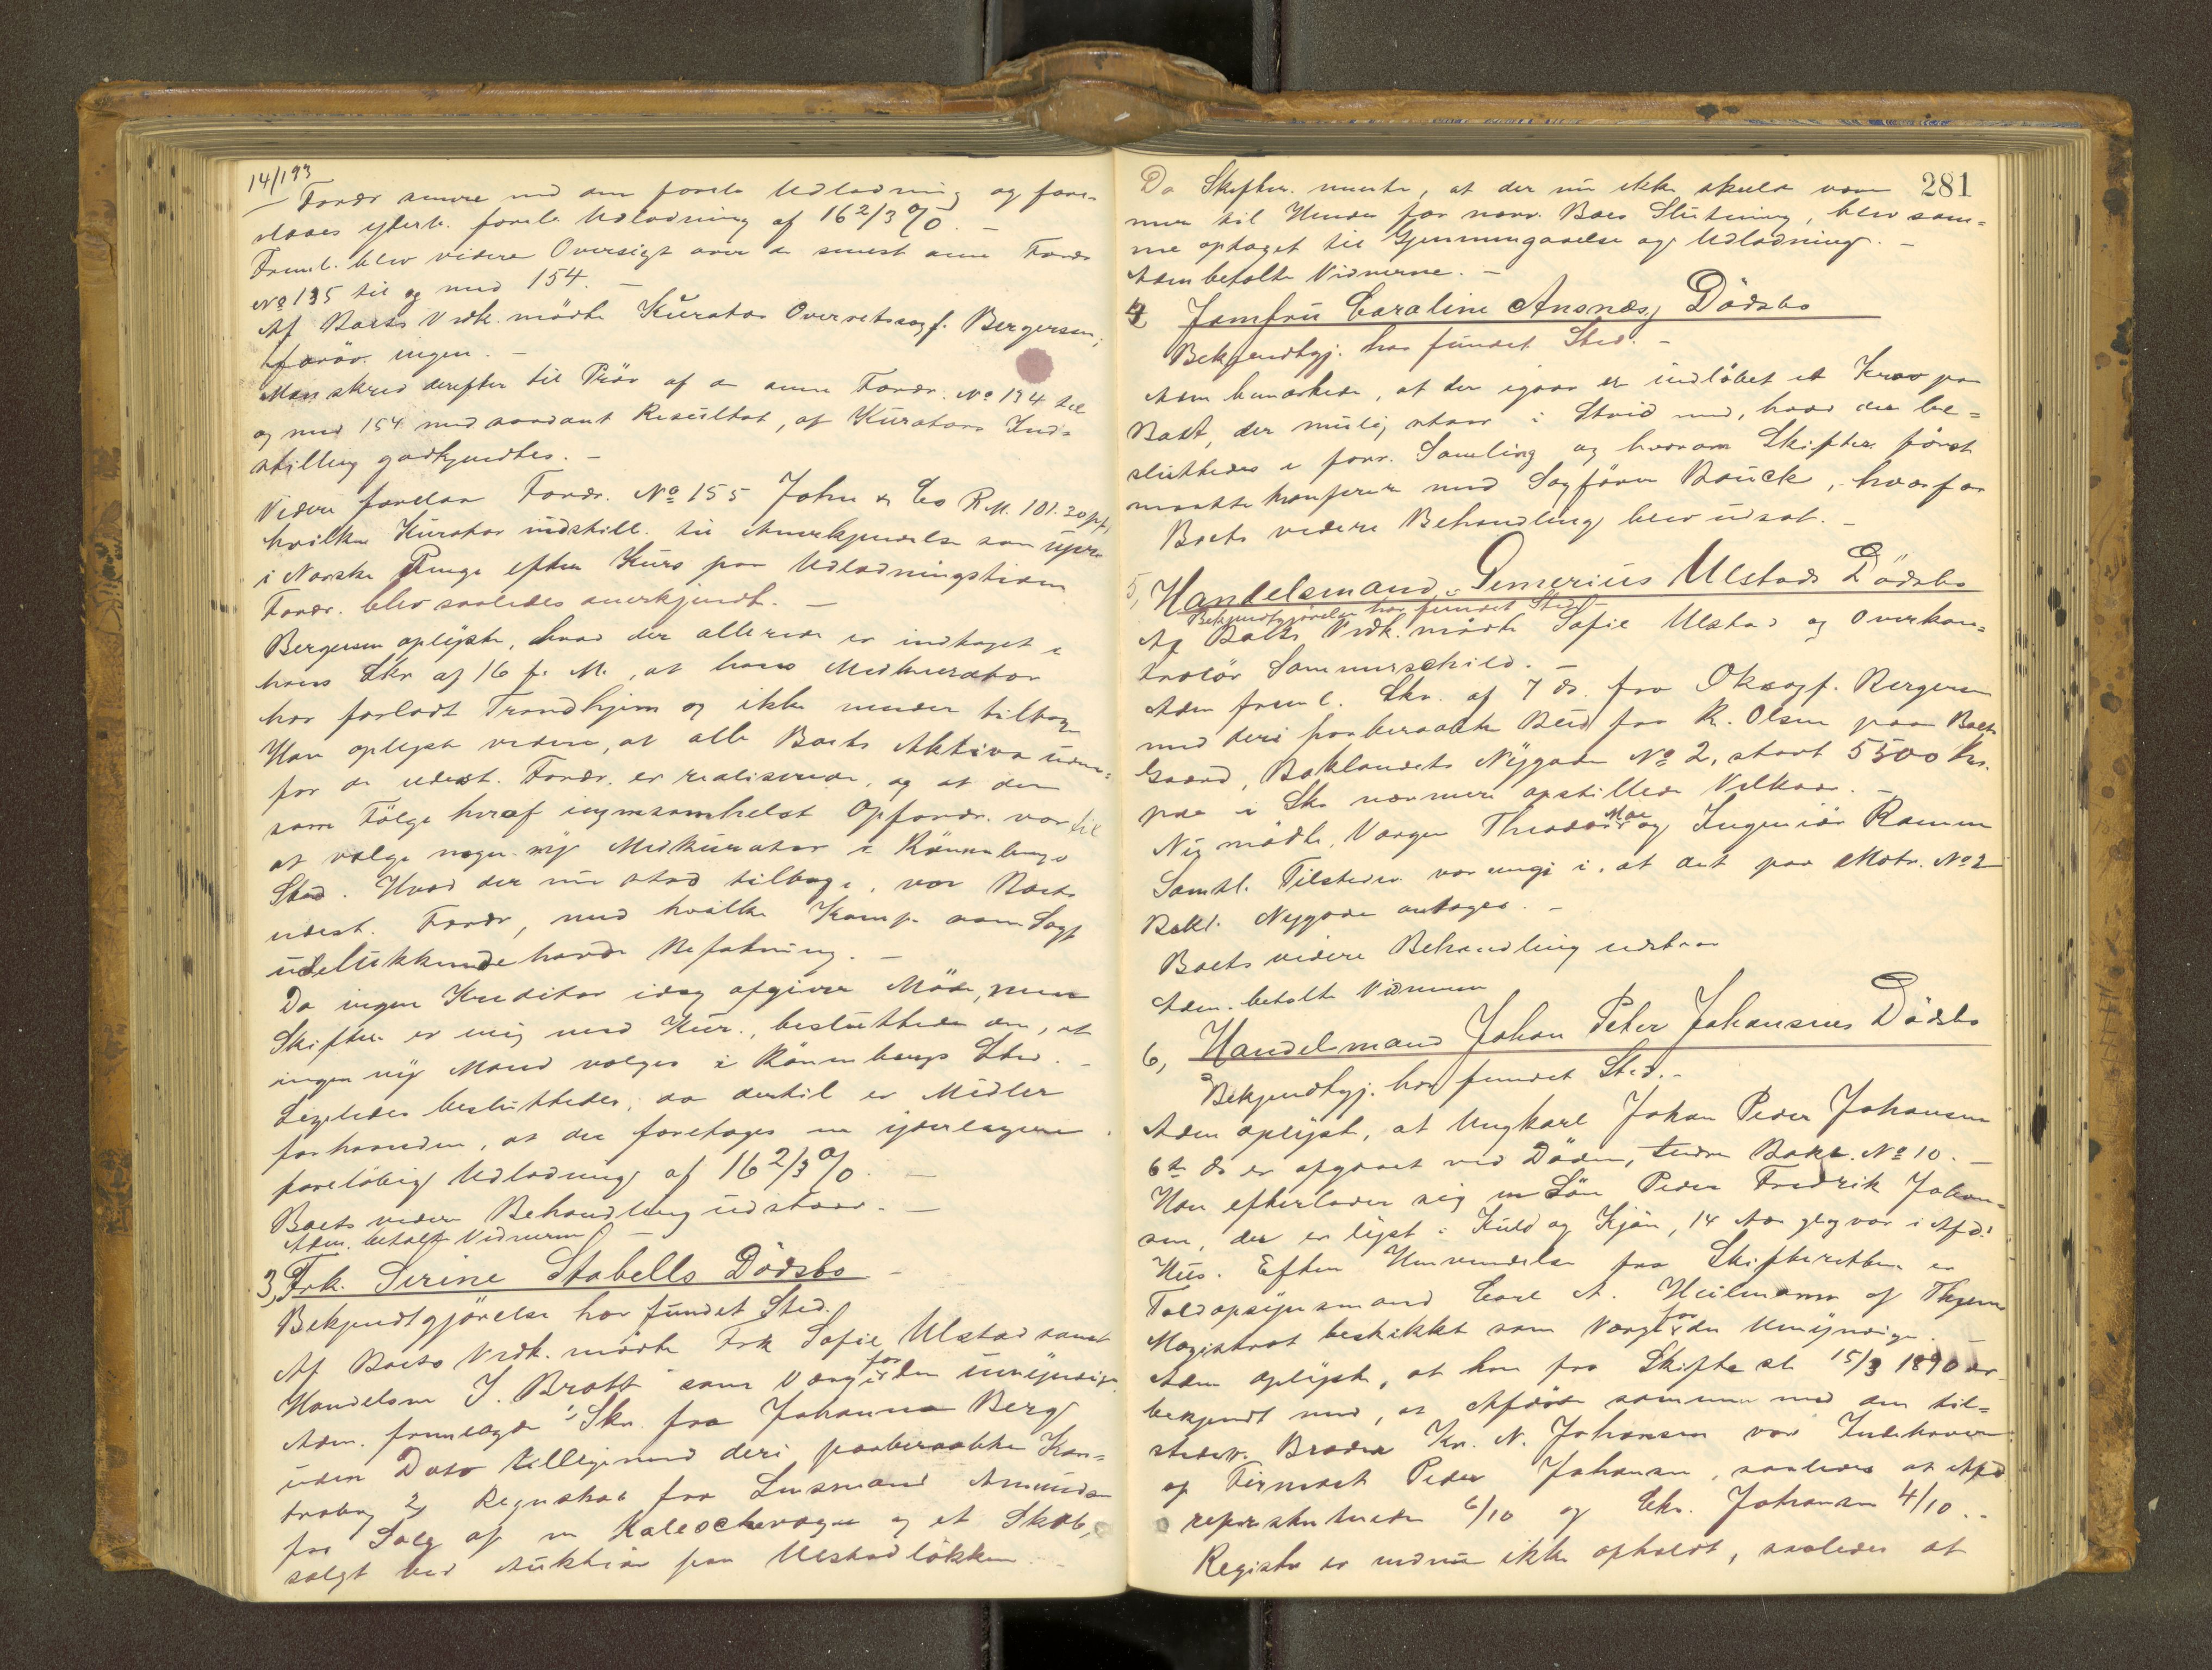 14/193
Fordr senere med den forelb Udlodning og fore-
slaaes yderl. forelb Udlodning af 16 2/3 %. –
Freml. blev videre Oversigt over de senest anm Fordr
No 135 til og med 154. –
Af Boets Vedk. mödte Kurator Overretssagf. Bergersen,
forövr. ingen. –
Man skred derefter til Pröv af de anm Fordr. No 134 til
og med 154 med saadant Resultat, at Kurators Ind-
stilling godkjendtes. –
Videre forelaa Fordr. No 155 John & Co RM. 101.20 pf,
hvilken Kurator indstill. til Anerkjendelse som upr.
i Norske Penge efter Kurs paa Udlodningstiden
Fordr. blev saaledes anerkjendt. –
Bergersen oplyste, hvad der allerede er indtaget i
hans Skr af 16 f. M., at hans Medkurator
har forladt Trondhjem og ikke vender tilbage
Han oplyste videre, at alle Boets Aktiva uden-
for de udest. Fordr. er realiserede, og at der
som Fölge heraf ingensomhelst Opfordr. var til
at vælge nogen ny Medkurator i Rönnebergs
Sted. Hvad der nu stod tilbage, var Boets
udest. Fordr, med hvilke Komp. som Sagf
udelukkende havde Befatning. –
Da ingen Kreditor idag afgiver Möde, men
Skifter. er enig med Kur., besluttedes den, at
ingen ny Mand vælges i Rönnebergs Sted. –
Ligeledes besluttedes, da dertil er Midler
forhaanden, at der foretages en yderligere
foreløbig Udlodning af 16 2/3 %. –
Boets videre Behandling udstaar. –
Adm. betalte Vidnerne –
3, Frk. Serine Stabells Dödsbo –
Bekjendtgjörelse har fundet Sted.
Af Boets Vedk. mödte Frk Sofie Ulstad samt
Handelsm J. Bratt som Værge for den umyndige
Adm. fremlagde 1, Skr. fra Johanna Berg
uden Dato tilligemed deri paaberaabte Kon-
trabog 2, Regnskab fra Lensmand Amundsen
fra Salg af en Kaleschevogn og et Skab,
solgt ved Auktion paa Ulstadlökken. –
281
Da Skifter. mente, at der nu ikke skulde være
mer til Hinder for nærv. Boes Slutning, blev sam-
me optaget til Gjennemgaaelse og Udlodning. –
Adm betalte Vidnerne. –
4, Jomfru Caroline Ansnæs, Dödsbo
Bekjendtgj. har fundet Sted. –
Adm bemærkede, at der igaar er indlöbet et Krav paa
Boet, der mulig staar i Strid med, hvad der be-
sluttedes i forr. Samling og hvorom Skifter först
maatte konferere med Sagförer Bauck, hvorfor
Boets videre Behandling blev udsat. –
5, Handelsmand Semerius Ulstads Dödsbo
Bekjendtgjörelse har fundet Sted –
Af Boets Vedk. mödte Sofie Ulstad og Overkon-
trolör Sommerschild. –
Adm freml. Skr. af 7 ds. fra Oksagf. Bergersen
med deri paaberaabte Bud fra K. Olsen paa Boets
Gaard, Baklandets Nygade No 2, stort 5500 Kr.
paa i Skr nærmere opstillede Vilkaar. –
Nu mödte, Værgen Theodor Moe og Ingeniör Ramm
Samtl. Tilstedev. var enige i, at det paa Matr. No 2
Bakl. Nygade antages. –
Boets videre Behandling udstaar
Adm. betalte Vidnerne
6, Handelmand Johan Peter Johansens Dödsbo
Bekjendtgj. har fundet Sted. –
Adm oplyste, at Ungkarl Johan Peder Johansen
6te ds er afgaaet ved Döden, Indre Bakl. No 10. –
Han efterlader sig en Sön Peder Fredrik Johan-
sen, der er lyst i Kuld og Kjön, 14 Aar gl og var i Afd.s
Hus. Efter Henvendelse fra Skifteretten er
Toldopsynsmand Carl A. Heilmann af Thjems
Magistrat beskikket som Værge for den Umyndige. –
Adm oplyste, at han fra Skifte sl. 15/3 1890 er
bekjendt med, at Afdöde sammen med den til-
stedev. Broder Kr. N. Johansen var Indehaver
af Firmaet Peder Johansen, saaledes at Afd
repræsenterede 6/10 og Chr. Johansen 4/10. –
Registr er endnu ikke opholdt, saaledes at